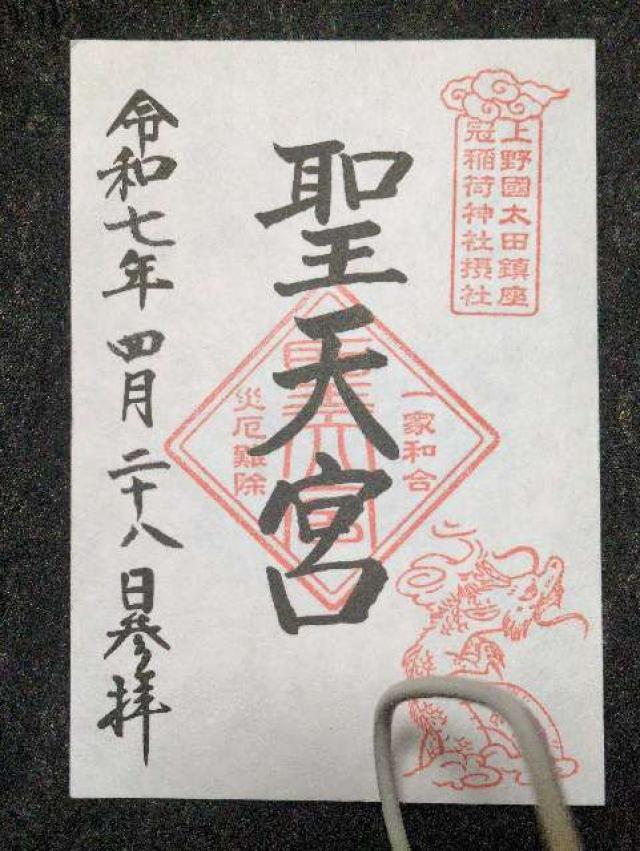 上野國太田鎮座
冠稲荷神社摂社
聖天宮
一家和合
聖天宮
災厄難除
令和七年四月二十八日参拝